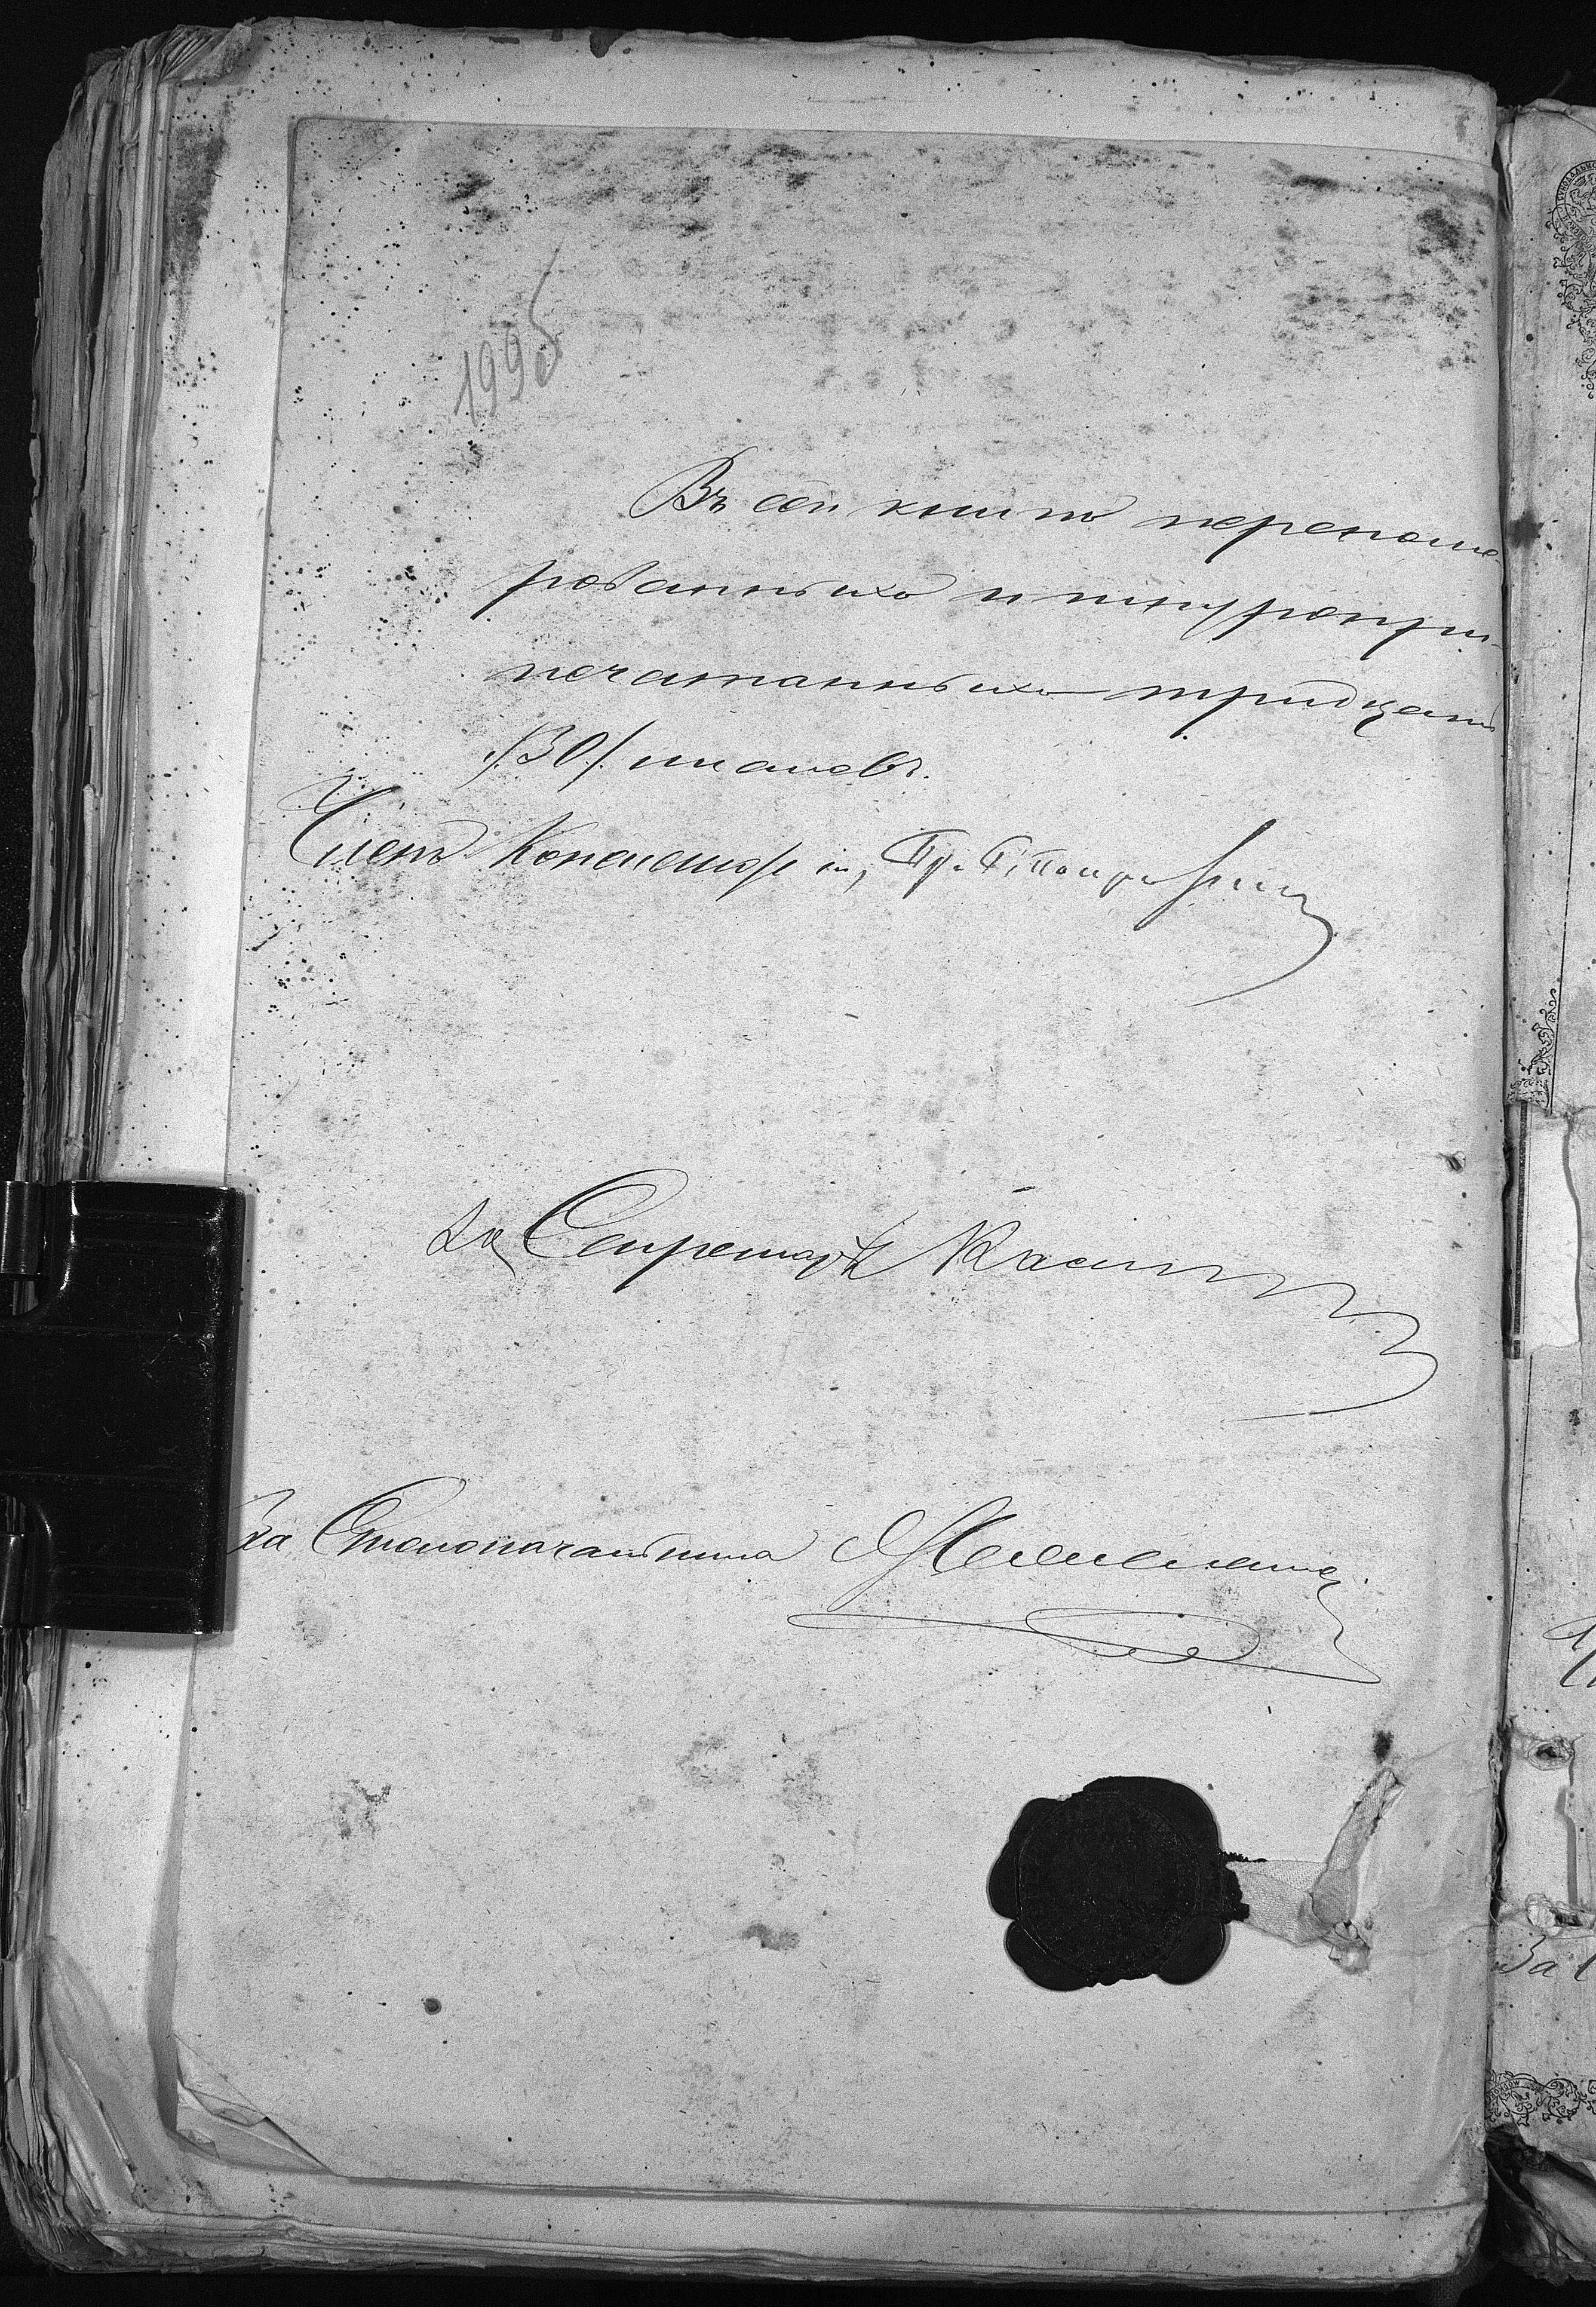 1995
Въ сей книгѣ перенуме-
рованныхъ и шнуропри-
печатанныхъ тридцать
/30/ листовъ.
Членъ Консисторіи,
За Секретаря
За Столоначальника
За